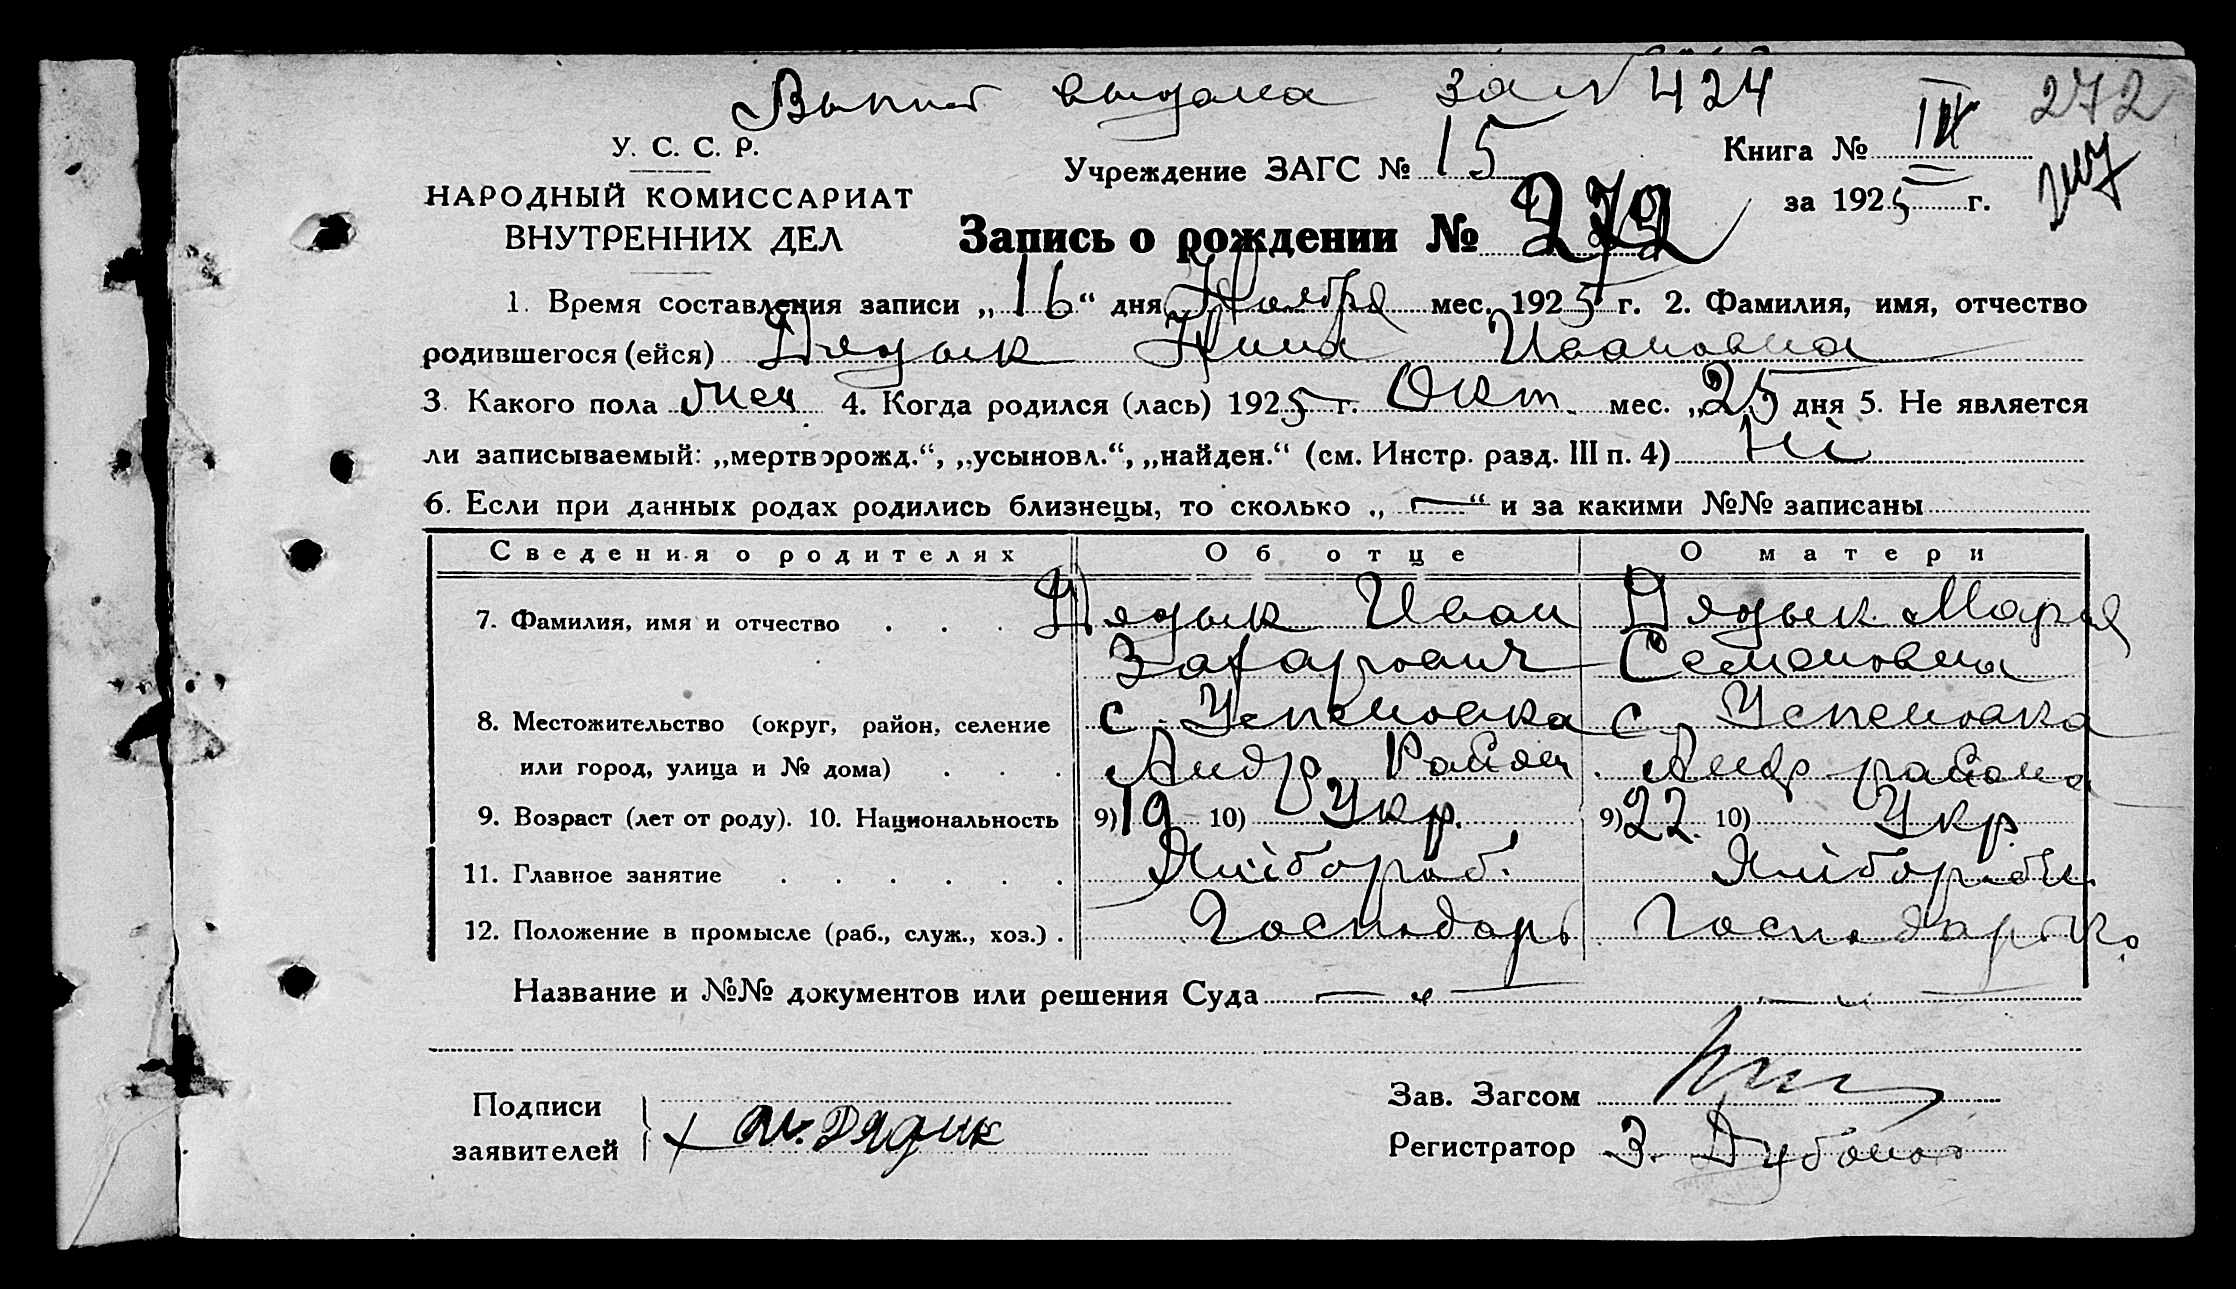 Выпис выдана за № 424
272
У. С. С. Р.
НАРОДНЫЙ КОМИССАРИАТ
ВНУТРЕННИХ ДЕЛ
Учреждение ЗАГС № 15
Книга № III
за 1925 г.
Запись о рождении № 272
1. Время составления записи „16“ дня Ноября мес. 1925 г. 2. Фамилия, имя, отчество
родившегося (ейся) Дядык Нина Ивановна
3. Какого пола жен 4. Когда родился (лась) 1925 г. Окт. мес. „25 дня 5. Не является
ли записываемый: „мертворожд.“, „усыновл.“, „найден.“ (см. Инстр. разд. III п. 4) Ні
6. Если при данных родах родились близнецы, то сколько „ — “ и за какими №№ записаны
Сведения о родителях Об отце О матери
7. Фамилия, имя и отчество . . . Дядык Иван Дядык Мария
Захарович Семеновна
8. Местожительство (округ, район, селение с. Успеновка с. Успеновка
или город, улица и № дома) . . . Андр. Района Андр района
9. Возраст (лет от роду). 10. Национальность 9) 19 10) Укр. 9) 22. 10) Укр.
11. Главное занятие . . . . . . Хлібороб. Хліборобк.
12. Положение в промысле (раб., служ., хоз.) . Господарь Господарька
Название и №№ документов или решения Суда — „ — — „ —
Подписи
заявителей
Дядик
Зав. Загсом
Регистратор З.